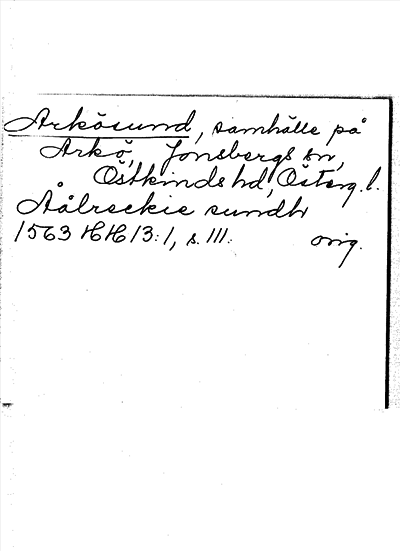 Arkösund, samhälle på
Arkö, Jonsbergs sn,
Östkinds hd, Österg. l.
Aålreckie sundh
1563 HH 13:1, s. 111. orig.